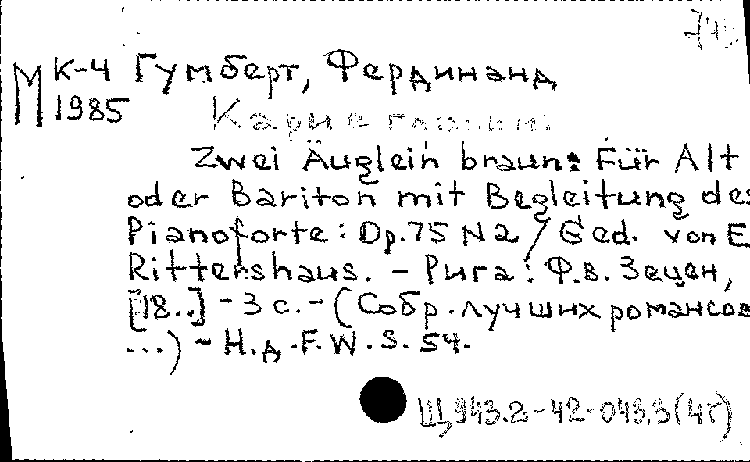 М К-4 Гумберт, Фердинанд
1985 Карие глазки:
Zwei Äuglein braun: Für Alt
oder Bariton mit Begleitung des
Pianoforte: Op. 75 N 2 / Ged. von E
Rittershaus. - Рига: Ф.в. Зецен,
[18..] - 3 с. - (Собр. лучших романсов
...) - Н.д. F.W.S. 54.
Щ943.2-42-043.3(4Г)